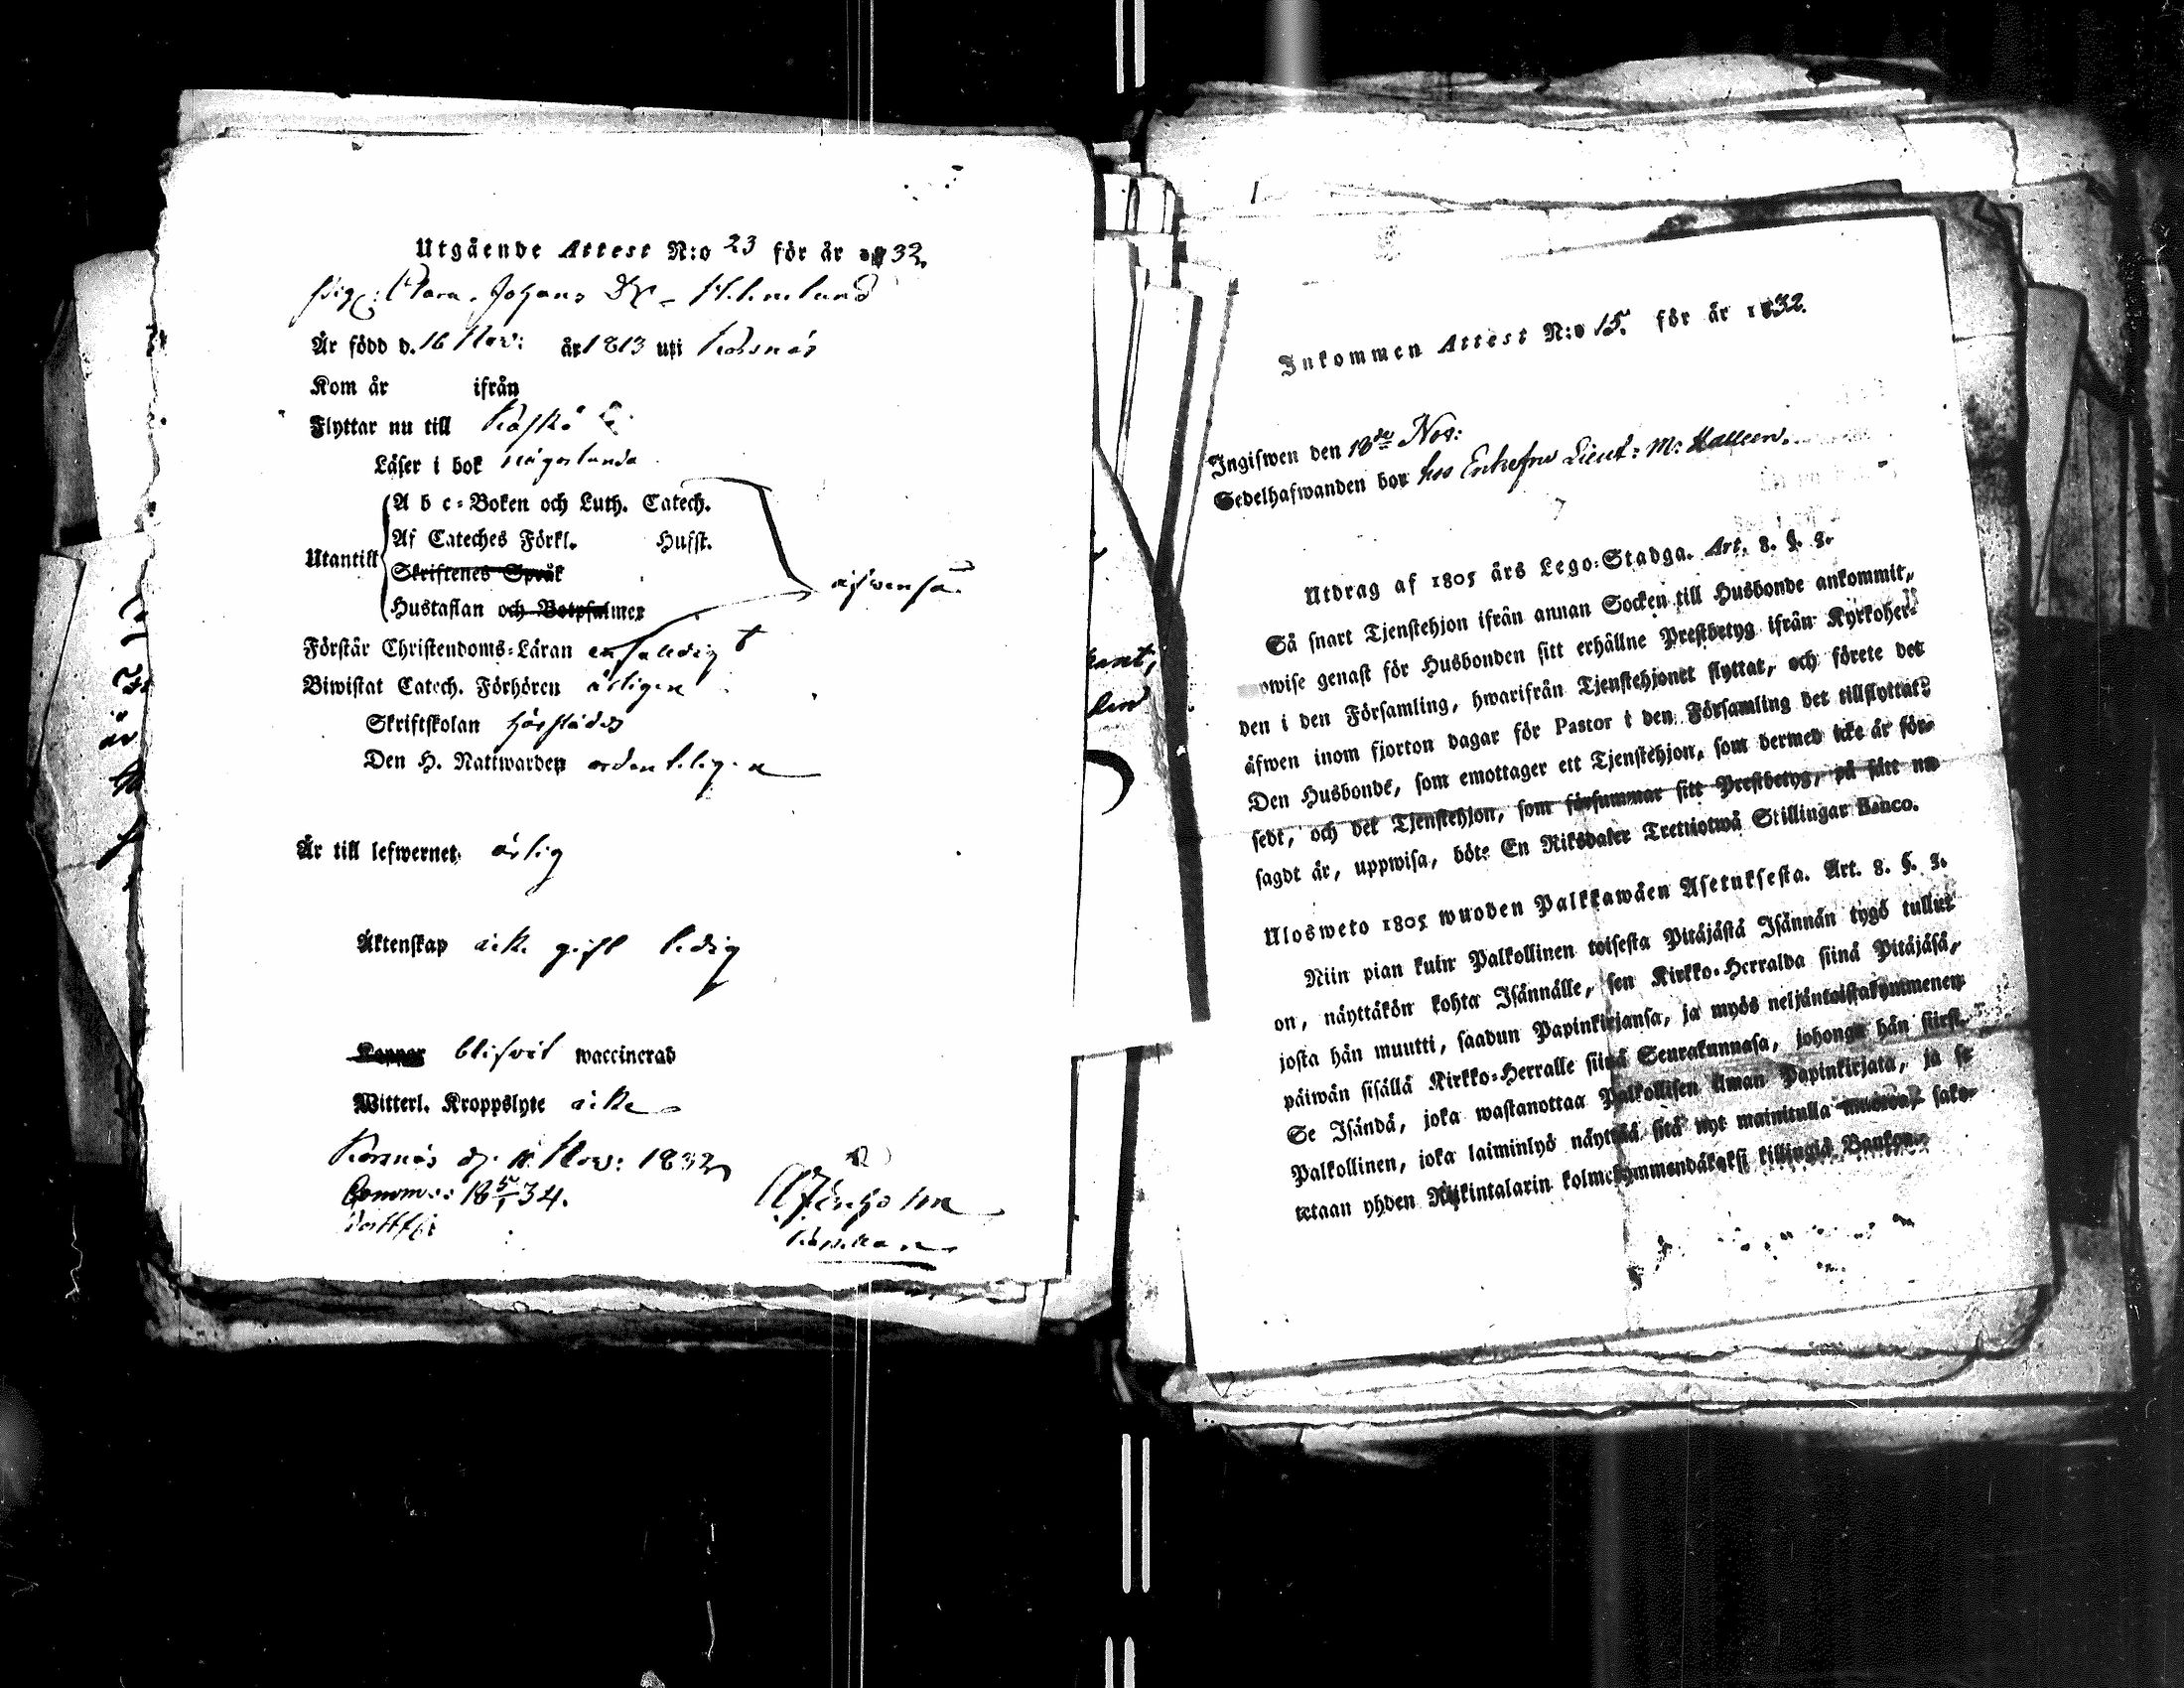 Utgående Attest N:o 23 för år 1832.
Pig: Clara Johans Dr
Är född d. 16 Nov: år 1813 uti Korsnäs
Kom år ifrån
Flyttar nu till Kaskö
Läser i bok någorlunda
A b c-Boken och Luth. Catech.
Af Cateches Förkl. Husst.
Utantill
Skriftenes Språk
Hustaflan och Botpsalmer
äfwenså
Förstår Christendoms-Läran enfaldigt
Biwistat Catech. Förhören årligen
Skriftskolan härstädes
Den H. Nattwarden ordentligen
Är till lefwernet ärlig
Äktenskap icke gift ledig
Koppor blifvit waccinerad
Witterl. Kroppslyte icke
Korsnäs d. Nov: 1832
18 5/1 34.
Inkommen Attest N:o 15. för år 1832.
Ingifwen den 18de Nov:
Sedelhafwanden bor hos Enkefru Lieut:
Utdrag af 1805 års Lego-Stadga. Art. 8. §. 9.
Så snart Tjenstehjon ifrån annan Socken till Husbonde ankommit,
upwise genast för Husbonden sitt erhållne Prestbetyg ifrån Kyrkoher-
den i den Församling, hwarifrån Tjenstehjonet flyttat, och förete det
äfwen inom fjorton dagar för Pastor i den Församling det tillflyttat.
Den Husbonde, som emottager ett Tjenstehjon, som dermed icke är för-
sedt, och det Tjenstehjon, som försummar sitt Prestbetyg, på sätt nu
sagdt är, uppwisa, böte En Riksdaler Trettiotwå Skillingar Banco.
Ulosweto 1805 wuoden Palkkawäen Asetuksesta. Art. 8. §. 9.
Niin pian kuin Palkollinen toisesta Pitäjästä Isännän tygö tullut
on, näyttäkön kohta Isännälle, sen Kirkko-Herralda siinä Pitäjäsä,
josta hän muutti, saadun Papinkirjansa, ja myös neljäntoistakymmenen
päiwän sisällä Kirkko-Herralle siinä Seurakunnasa, johonga hän siirsi.
Se Isändä, joka wastanottaa Palkollisen ilman Papinkirjata, ja se
Palkollinen, joka laiminlyö näyttää sitä nyt mainitulla muowolla sako-
tetaan yhden Riikintalarin kolmekymmendäkaksi killingiä Bankoa.